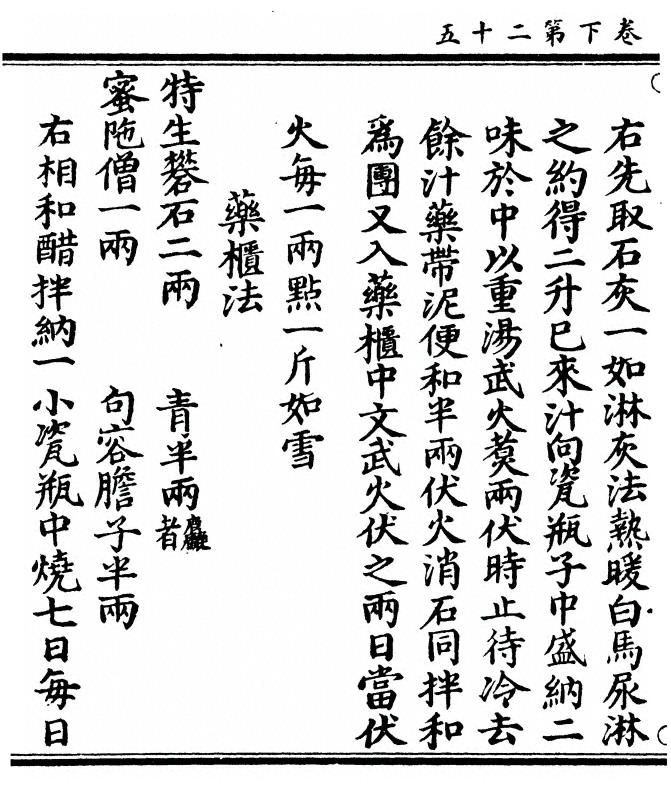 卷下第二十五
右先取石灰一如淋灰法熱暖白馬尿淋
之約得二升已來汁向瓷瓶子中盛納二
味於中以重湯武火煑兩伏時止待冷去
餘汁藥帶泥便和半兩伏火消石同拌和
爲團又入藥櫃中文武火伏之兩日當伏
火每一兩點一斤如雪
藥櫃法
特生礬石二兩 青半兩 者
蜜陁僧一兩 句容膽子半兩
右相和醋拌納一小瓷瓶中燒七日每日